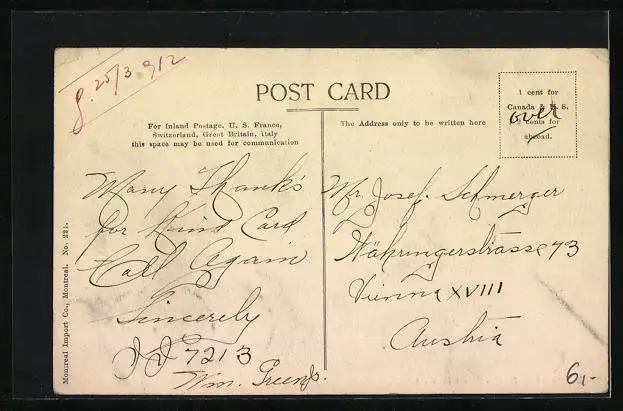 g. 25/3 912
POST CARD
For Inland Postage, U. S. France,
Switzerland, Great Britain, Italy
this space may be used for communication
The Address only to be written here
1 cent for
Canada & U. S.
2 cents for
abroad.
over
Many Thanks
for Kind Card
Call Again
Sincerely
JJ 7213
Wm. Green Jr.
Mr. Josef. Schmerger
Währingerstrasse 73
Vienna XVIII
Austria
Montreal Import Co., Montreal. No. 221.
6,-